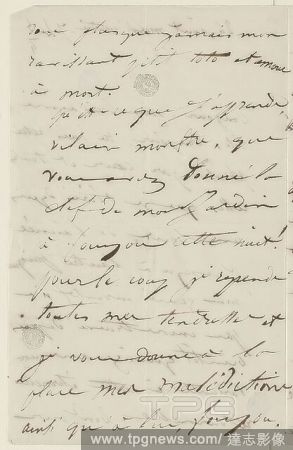 vous plus que jamais mon
ravissant petit toto et amour
à mort.
qu'est-ce que j'apprends,
vilain monstre, que
vous avez donné la
clef de mon jardin
à Fouyou cette nuit!
pour le coup je reprends
toutes mes tendresses et
je vous donne à la
place mes malédictions
ainsi qu'à Fouyou.
TPG
www.tpgnews.com / 達志影像